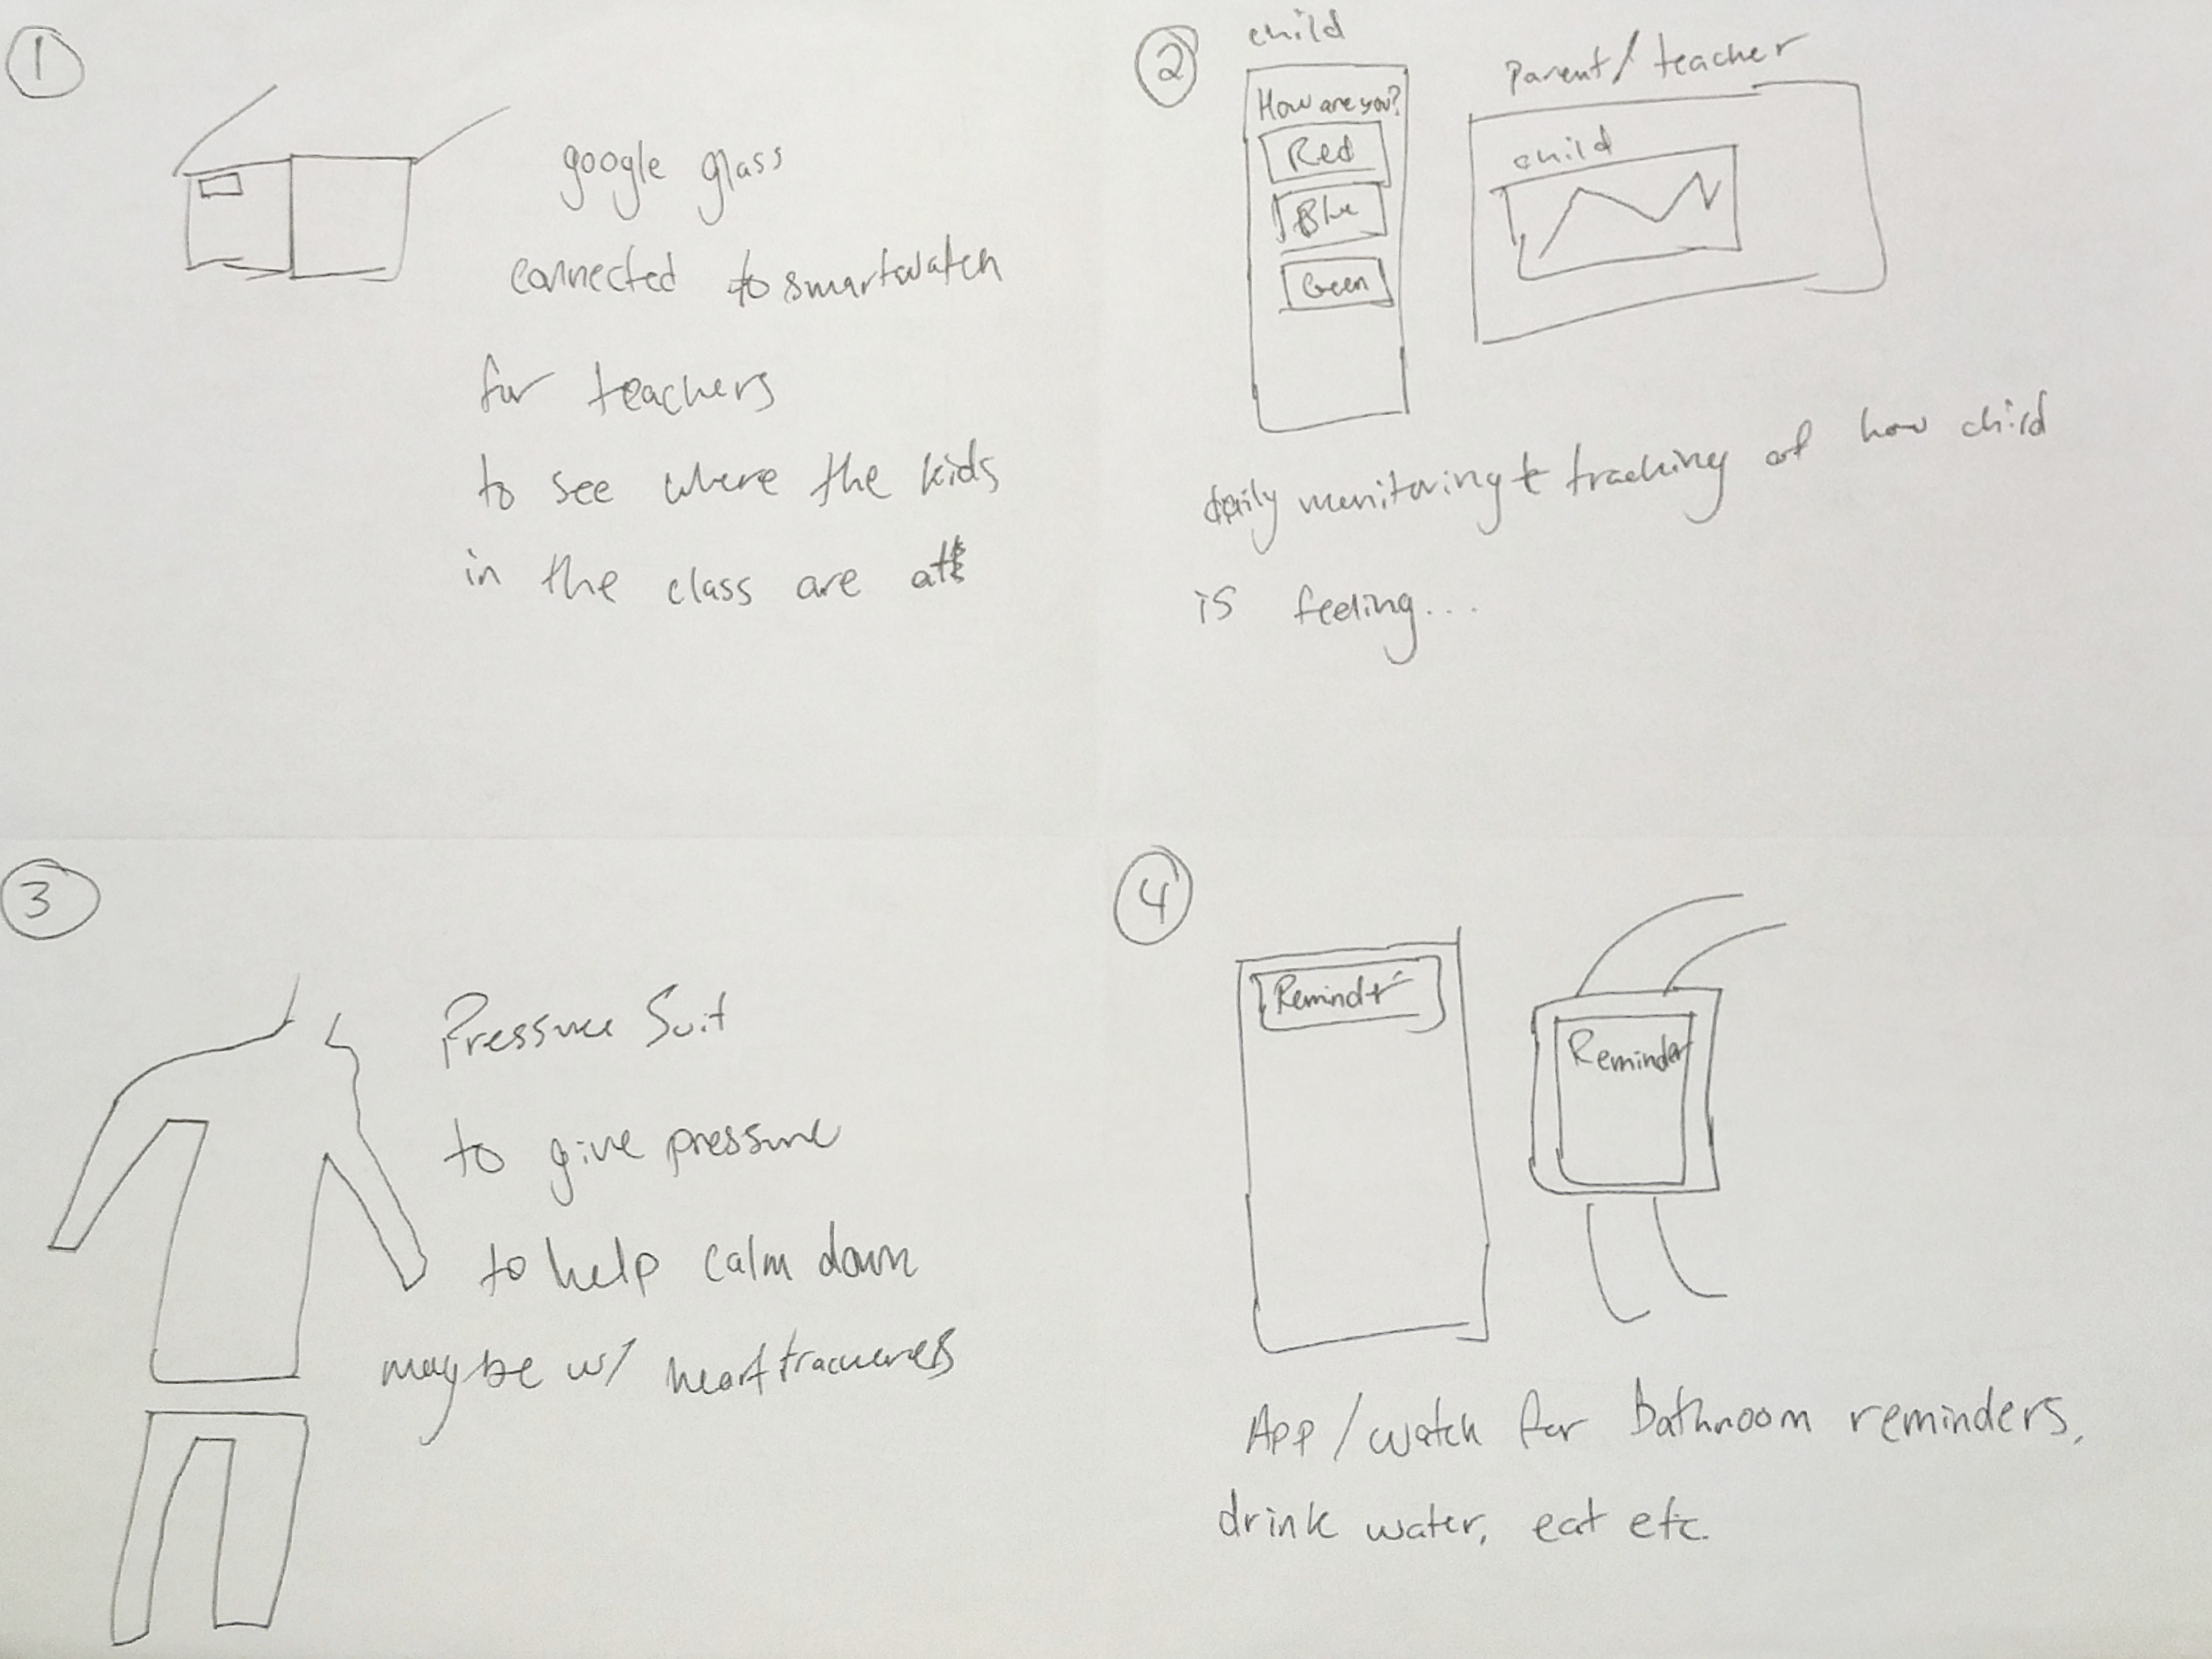 1
google glass
connected to smartwatch
for teachers
to see where the kids
in the class are at
2
child
How are you?
Red
Blue
Green
Parent/teacher
child
daily monitoring & tracking of how child
is feeling...
3
Pressure Suit
to give pressure
to help calm down
maybe w/ heart
4
Reminder
Reminder
App/watch for Bathroom reminders,
drink water, eat etc.